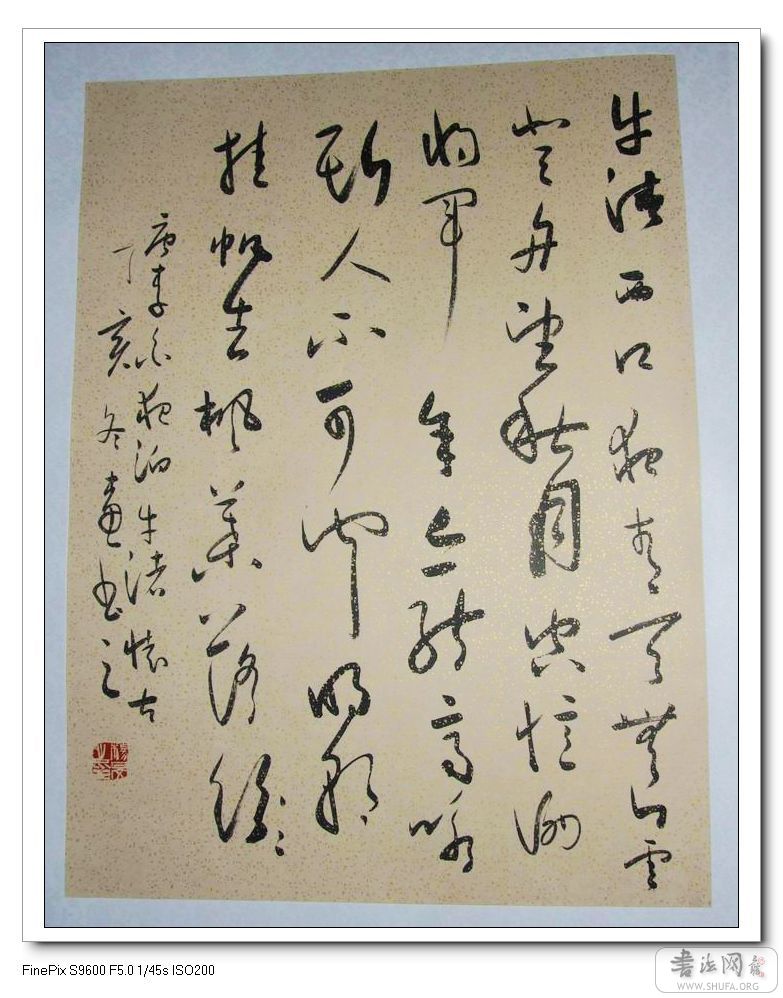 牛渚西江夜青天無片雲
登舟望秋月空憶謝
將軍余亦能高咏
斯人不可聞明朝
挂帆去楓葉落紛〻
唐李白夜泊牛渚懷古
丁亥冬 书之
FinePix S9600 F5.0 1/45s ISO200
书法网
WWW.SHUFA.ORG